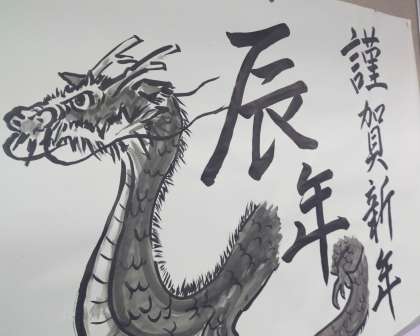 謹賀新年
辰年